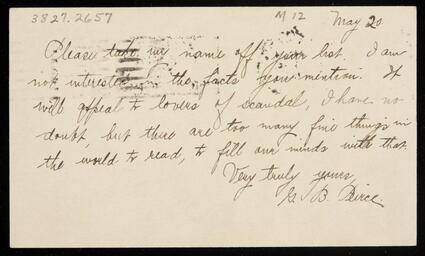 3827.2657 M 12 May 20
Please take my name off your list. I am
not interested in the facts you mention. It
will appeal to lovers of scandal, I have no
doubt, but there are too many fine things in
the world to read, to fill our minds with that.
Very truly yours,
G. B. Peirce.